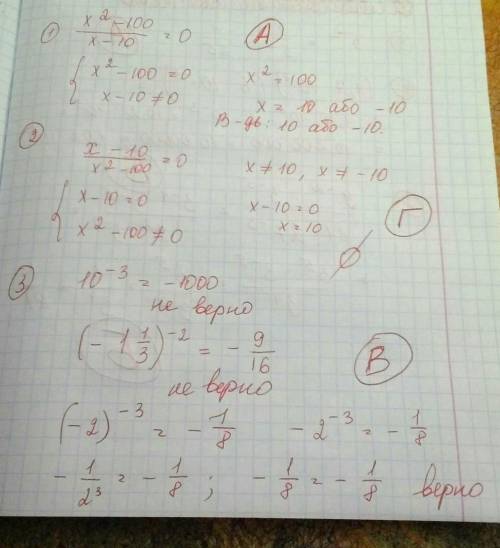 ① (x² - 100)/(x - 10) = 0   А
{ x² - 100 = 0   x² = 100
x - 10 ≠ 0   x = 10 або -10
В-дь: 10 або -10.
② (x - 10)/(x² - 100) = 0   x ≠ 10, x ≠ -10
{ x - 10 = 0   x - 10 = 0   Г
x² - 100 ≠ 0   x = 10
∅
③ 10⁻³ = -1000
не верно
(-1 1/3)⁻² = - 9/16   В
не верно
(-2)⁻³ = - 1/8   -2⁻³ = - 1/8
- 1/2³ = - 1/8 ; - 1/8 = - 1/8 верно